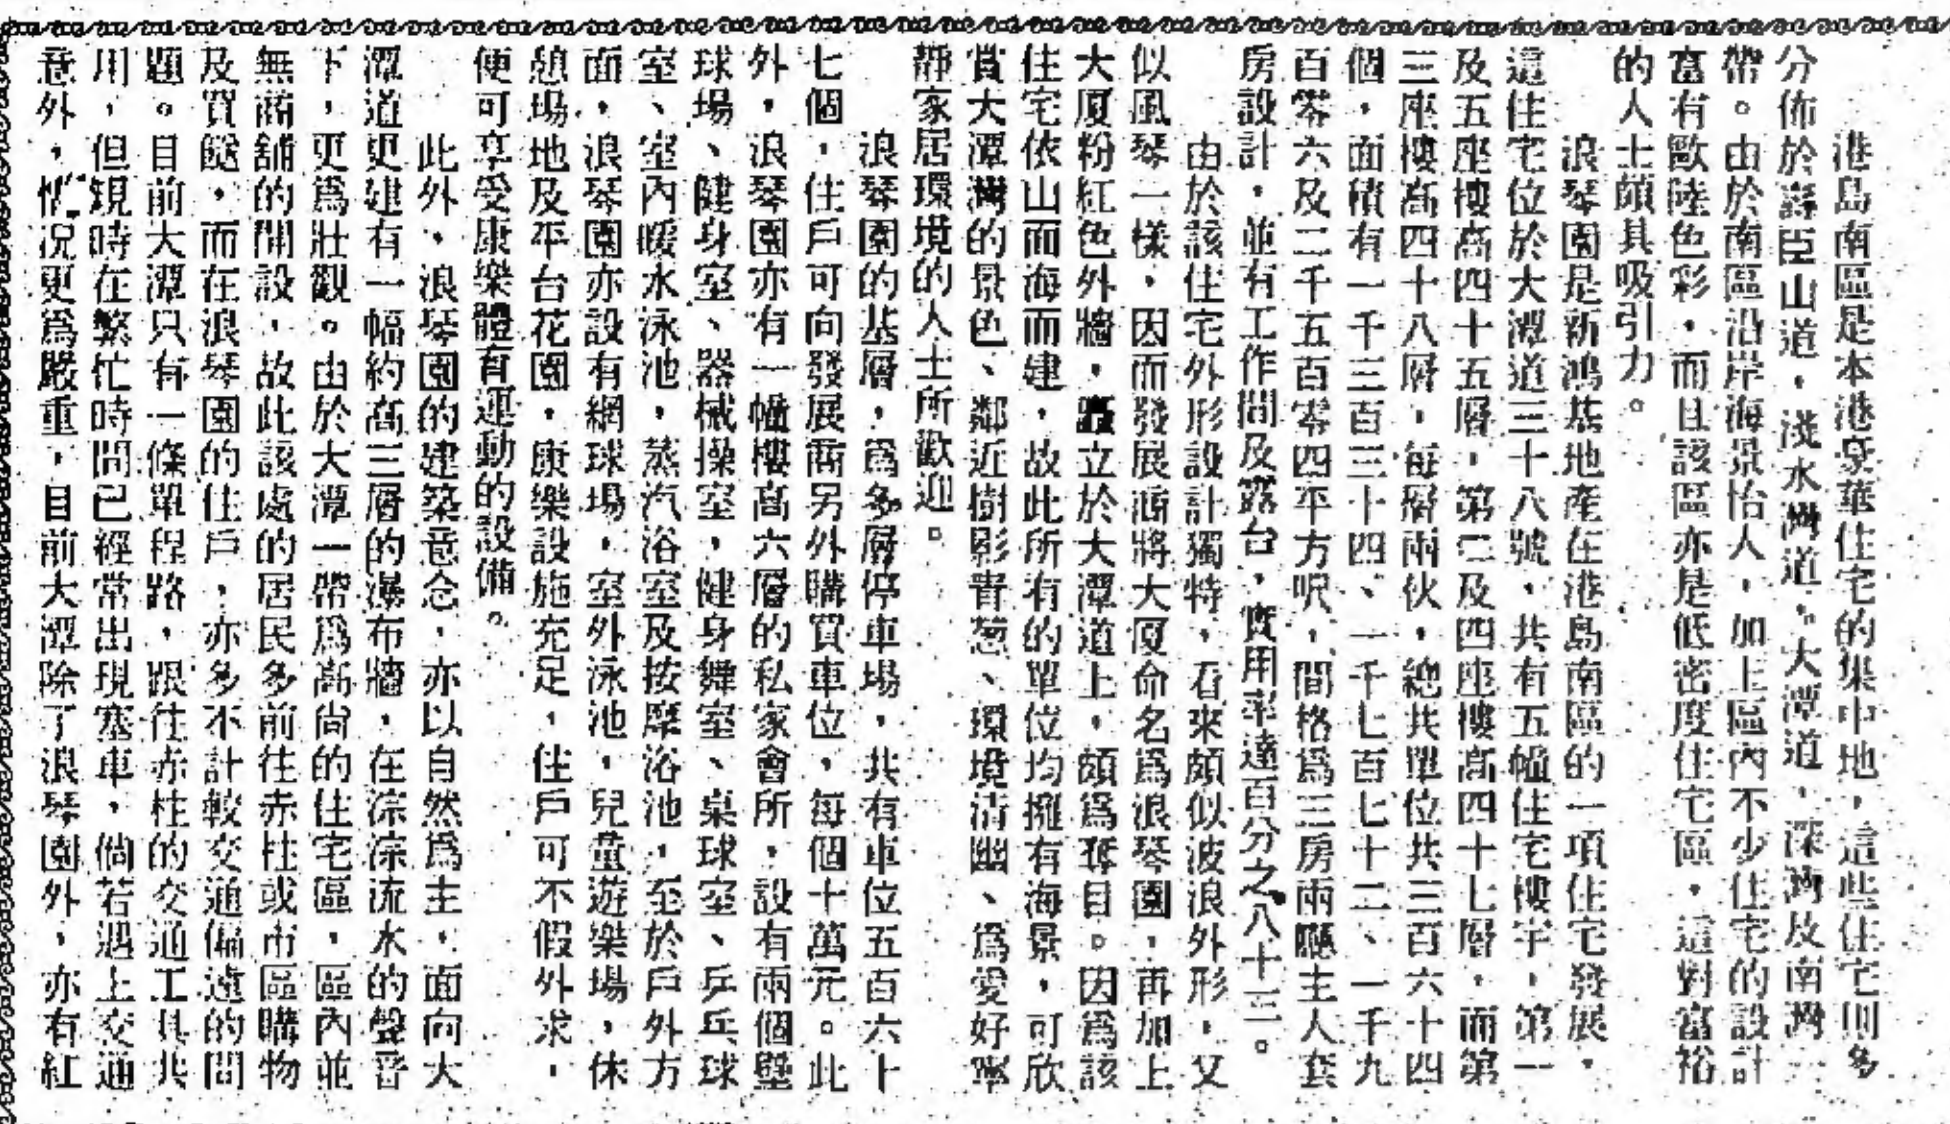 港島南區是本港豪華住宅的集中地，這些住宅則多
分佈於壽臣山道，淺水灣道，大潭道，深灣及南灣一
帶。由於南區沿岸海景怡人，加上區內不少住宅的設計
富有歐陸色彩，而且該區亦是低密度住宅區，這對富裕
的人士頗具吸引力。
浪琴園是新鴻基地產在港島南區的一項住宅發展，
這住宅位於大潭道三十八號，共有五幢住宅樓宇，第一
及五座樓高四十五層，第二及四座樓高四十七層，而第
三座樓高四十八層，每層兩伙，總共單位共三百六十四
個，面積有一千三百三十四、一千七百七十二、一千九
百零六及二千五百零四平方呎，間格為三房兩廳主人套
房設計，並有工作間及露台，實用率達百分之八十三。
由於該住宅外形設計獨特，看來頗似波浪外形，又
似風琴一樣，因而發展商將大廈命名為浪琴園，再加上
大廈粉紅色外牆，矗立於大潭道上，頗為奪目。因為該
住宅依山而海而建，故此所有的單位均擁有海景，可欣
賞大潭灣的景色、鄰近樹影青葱、環境清幽、為愛好寧
靜家居環境的人士所歡迎。
浪琴園的基層，為多層停車場，共有車位五百六十
七個，住戶可向發展商另外購買車位，每個十萬元。此
外，浪琴園亦有一幢樓高六層的私家會所，設有兩個壁
球場、健身室、器械操室，健身舞室、桌球室、乒乓球
室、室內暖水泳池，蒸汽浴室及按摩浴池，至於戶外方
面，浪琴園亦設有網球場，室外泳池，兒童遊樂場，休
憩場地及平台花園，康樂設施充足，住戶可不假外求，
便可享受康樂體育運動的設備。
此外，浪琴園的建築意念，亦以自然為主，面向大
潭道更建有一幅約高三層的瀑布牆，在淙淙流水的聲音
下，更為壯觀。由於大潭一帶為高尚的住宅區，區內並
無商舖的開設，故此該處的居民多前往赤柱或市區購物
及買餸，而在浪琴園的住戶，亦多不計較交通偏遠的問
題。目前大潭只有一條單程路，跟往赤柱的交通工具共
用，但現時在繁忙時間已經常出現塞車，倘若遇上交通
意外，情況更為嚴重，目前大潭除了浪琴園外，亦有紅